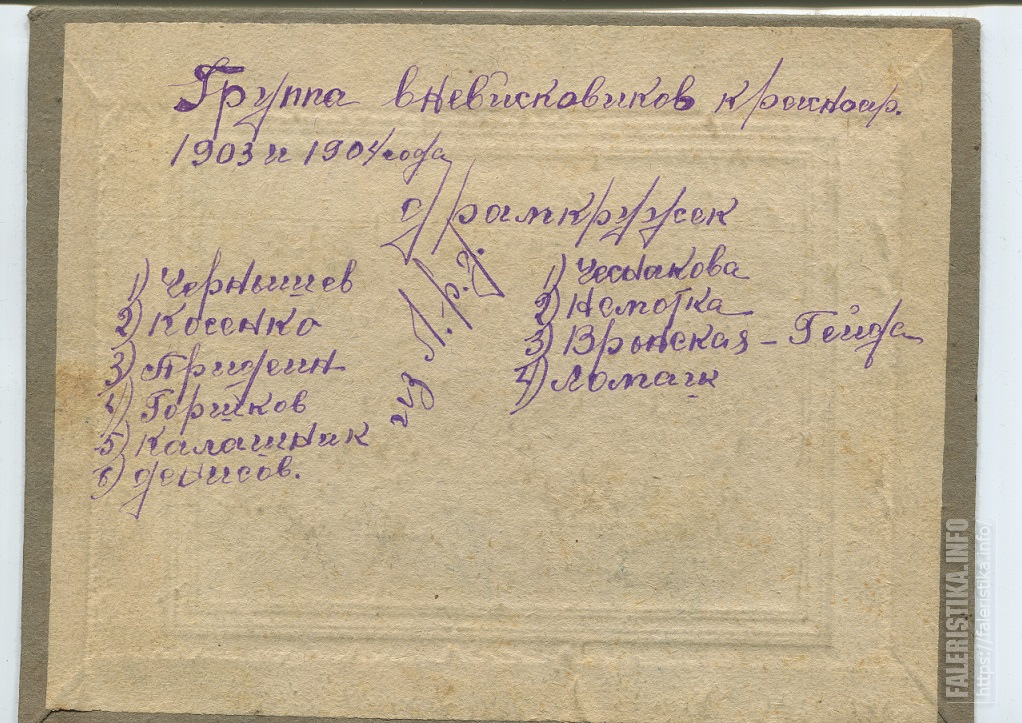 Группа вневисковиков красноар.
1903 и 1904 года
драмкружек
из Л.р.д.
1) Чернышев
2) Косенко
3) Придеин
4) Горшков
5) Калашник
6) Денисов.
1) Чеснакова
2) Немотка
3) Вронская - Гейда
4) Ломаик
FALERISTIKA.INFO
https://faleristika.info